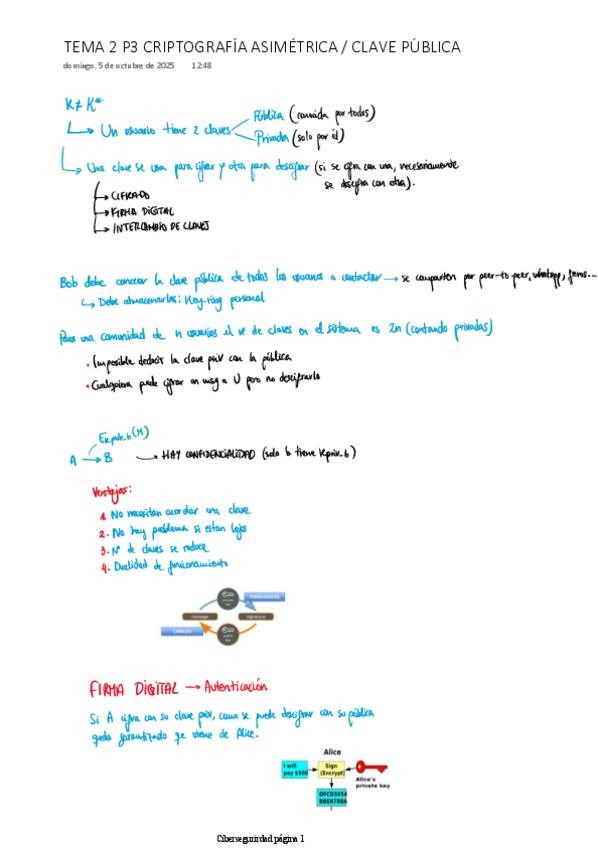 TEMA 2 P3 CRIPTOGRAFÍA ASIMÉTRICA / CLAVE PÚBLICA
domingo, 5 de octubre de 2025 12:48
K ≠ K*
Un usuario tiene 2 claves
Pública (conocida por todos)
Privada (solo por él)
Una clave se usa para cifrar y otra para descifrar (si se cifra con una, necesariamente
se descifra con otra).
CIFRADO
FIRMA DIGITAL
INTERCAMBIO DE CLAVES
Bob debe conocer la clave pública de todos los usuarios a contactar → se comparten por peer-to-peer, whatsapp, foros...
Debe almacenarlas: Key-ring personal
Para una comunidad de n usuarios el nº de claves en el sistema es 2n (contando privadas)
• Imposible deducir la clave priv con la pública
• Cualquiera puede cifrar un msg a U pero no descifrarlo
Ekpub.b(M)
A → B → HAY CONFIDENCIALIDAD (solo b tiene Kpriv.b)
Ventajas:
1. No necesitan acordar una clave
2. No hay problema si estan lejos
3. Nº de claves se reduce
4. Dualidad de funcionamiento
FIRMA DIGITAL
message
signature
CIFRADO
FIRMA DIGITAL → Autenticación
Si A cifra con su clave priv, como se puede descifrar con su pública
queda garantizado qe viene de Alice.
Alice
I will
pay $500
Sign
(Encrypt)
Alice's
private key
DFCD3454
BBEA788A
Ciberseguridad página 1